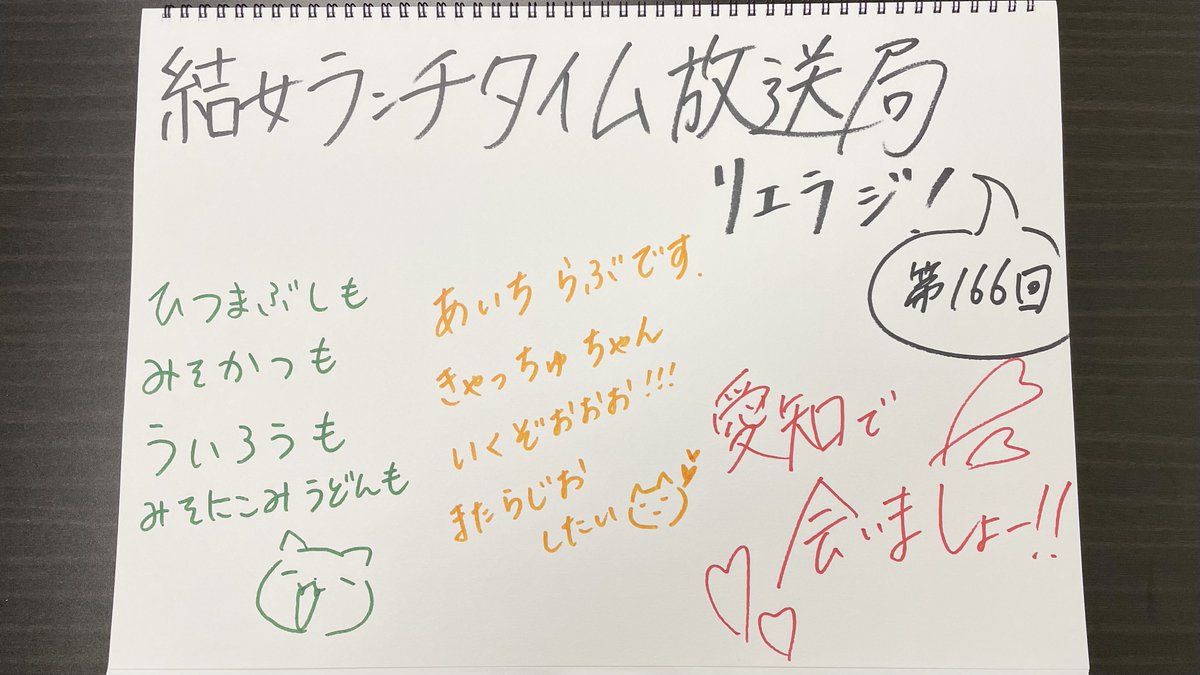 結女ランチタイム放送局
リエラジ!
第166回
ひつまぶしも
みそかつも
ういろうも
みそにこみうどんも
あいちらぶです.
きゃっちゅちゃん
いくぞおおお!!!
またらじお
したい
愛知で
会いましょー!!